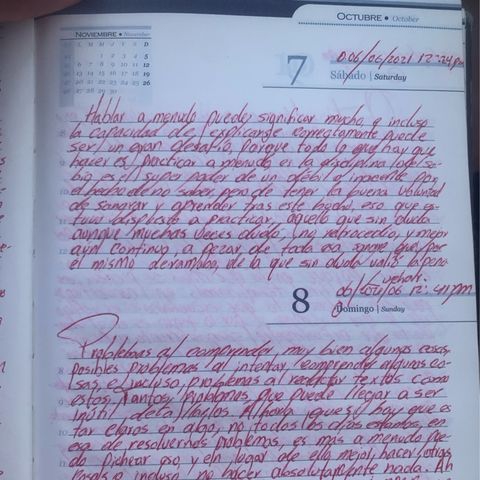 OCTUBRE • October
NOVIEMBRE • November
L M M J V S D
7
06/06/2021 12:24pm
Sábado | Saturday
Hablar a menudo puede significar mucho, e incluso
la capacidad de explicarse correctamente puede
ser un gran desafío, porque todo lo que hay que
hacer es practicar a menudo es la disciplina
es el super poder de un débil e impotente por
el hecho de no saber, pero de tener la buena voluntad
de sangrar y aprender tras este
tuve dispuesto a practicar, aquello que sin duda
aunque muchas veces dudo, no retrocedio, y mejor
aynl continuo, a pezar de toda esa sangre que por
el mismo derramaba, de la que sin duda valió la pena
8
12:41pm
Domingo | Sunday
Problemas al comprender, muy bien algunas cosas,
posibles problemas al intentar comprender algunas co-
sas, e incluso, problemas al redactar textos como
estos. Tantos problemas que puede llegar a ser
inútil Ahora que si hay que es
tar claros en algo, no todos los días estamos en
esa de resolvernos problemas, es mas a menudo pue
do eso, y en lugar de ello mejor hacer otras
cosas o incluso no hacer absolutamente nada. Ah